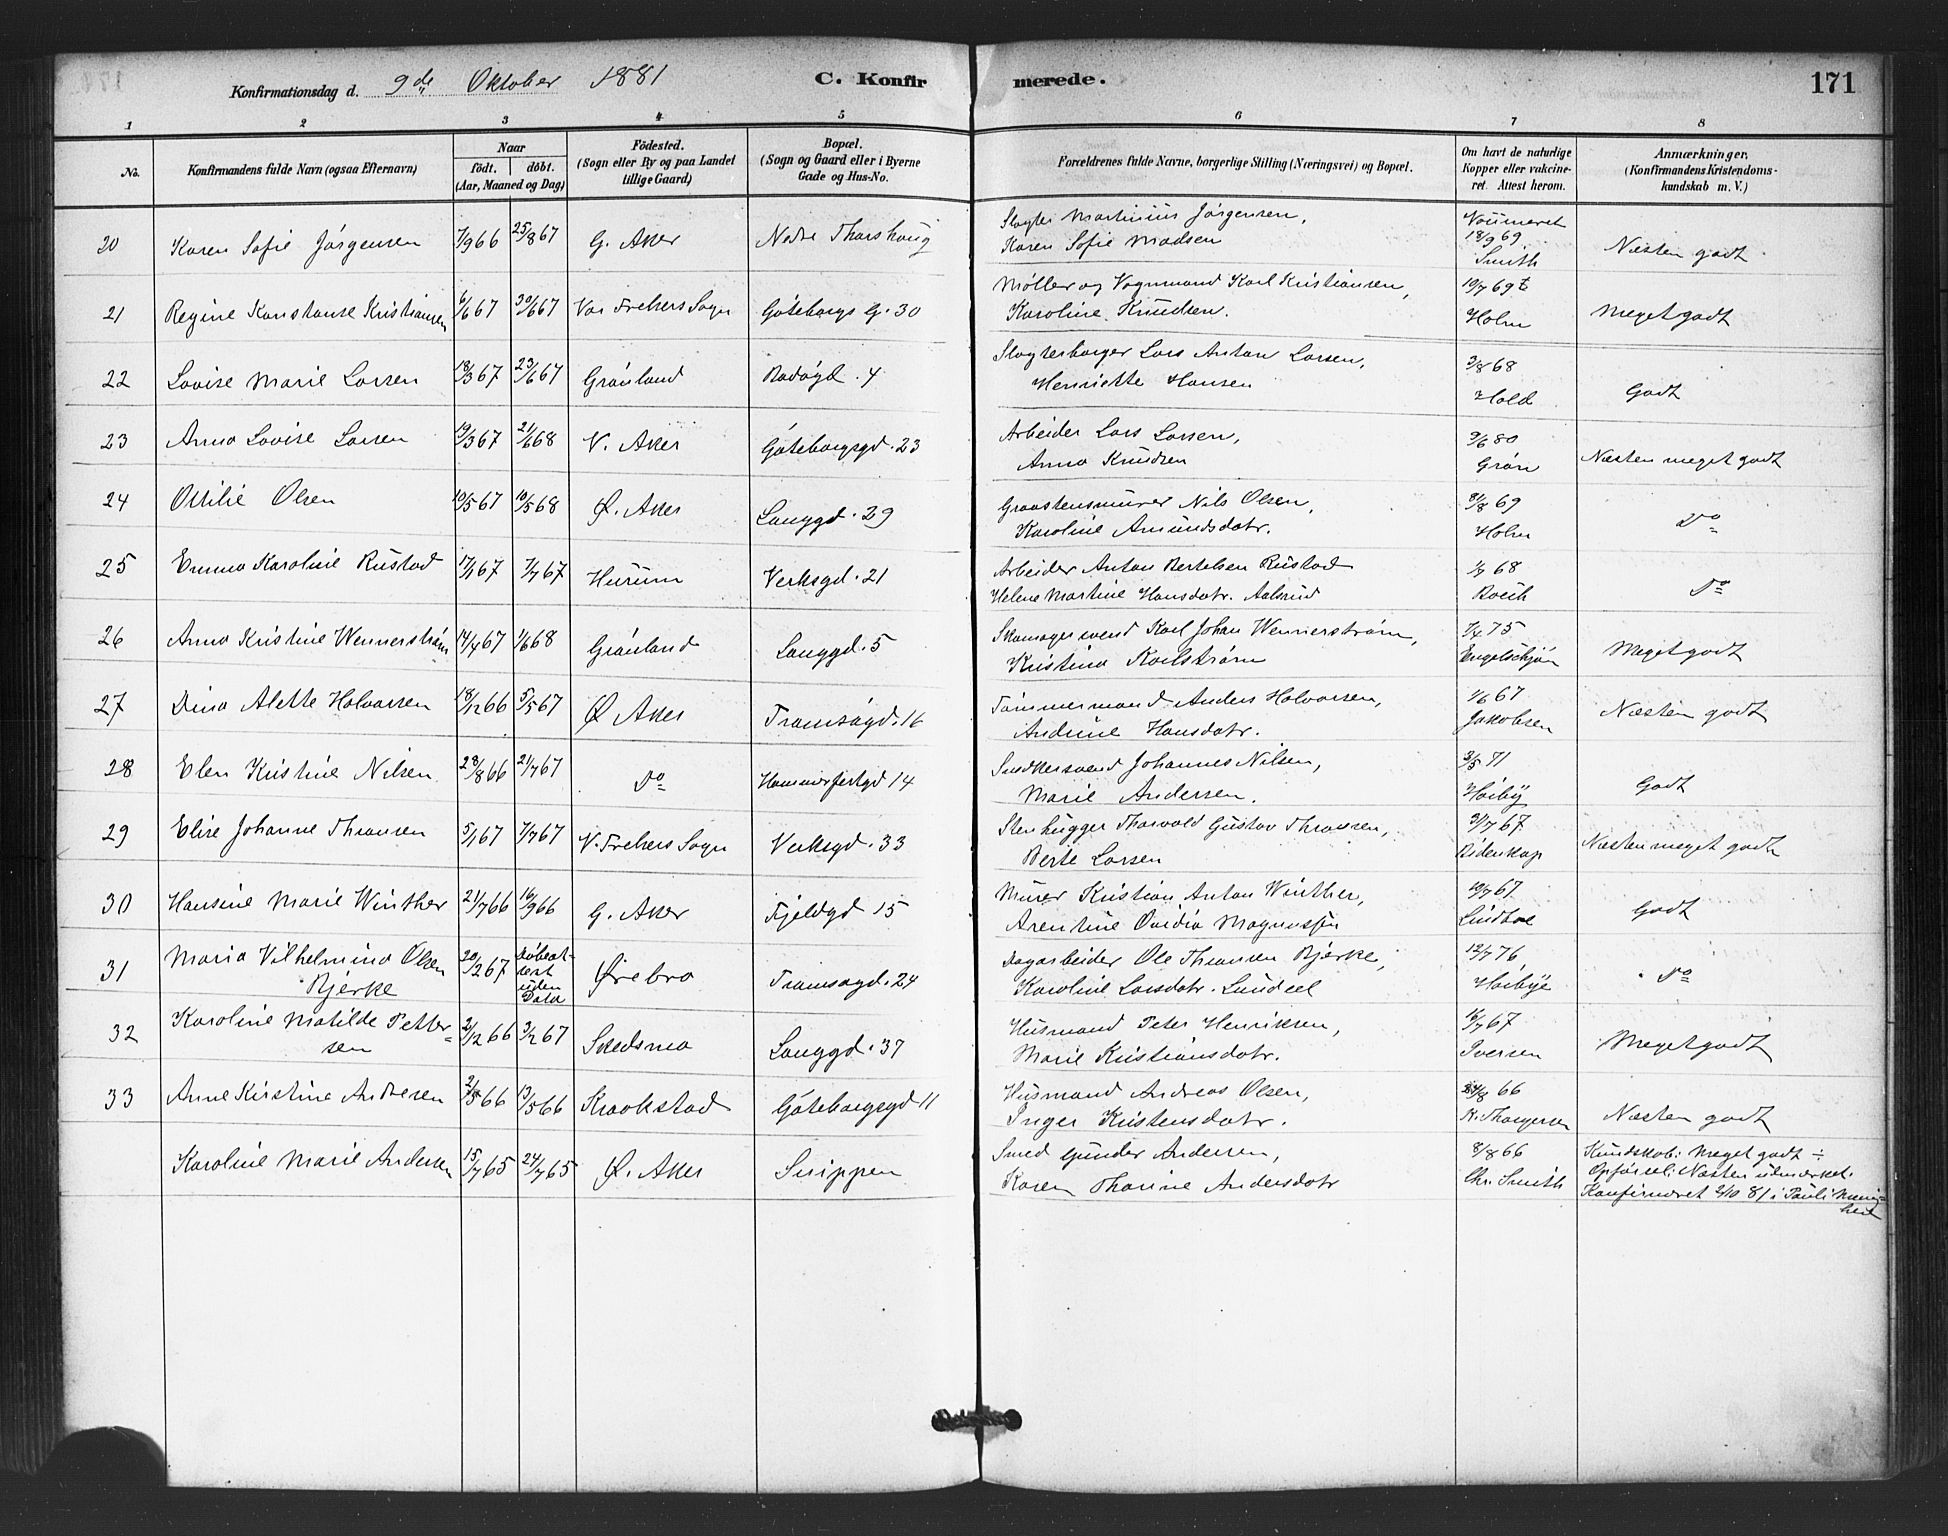 Konfirmationsdag d. 9de Oktober 1881 C. Konfirmerede. 171
1 2 3 4 5 6 7 8
No. Konfirmandens fulde Navn (ogsaa Efternavn) Naar födt. döbt. (Aar, Maaned og Dag) Födested. (Sogn eller By og paa Landet tillige Gaard) Bopæl. (Sogn og Gaard eller i Byerne Gade og Hus-No. Forældrenes fulde Navne, borgerlige Stilling (Næringsvei) og Bopæl. Om havt de naturlige Kopper eller vakcineret. Attest herom. Anmærkninger. (Konfirmandens Kristendomskundskab m. V.)
20 Karen Sofie Jörgensen 7/9 66 25/8 67 G. Aker Nedre Thorshaug Slagter Martinius Jörgensen, Karen Sofie Madsen 18/9 69. Smith Næsten godt.
21 Regine Konstanse Kristiansen 6/1 67 30/6 67 Vor Frelsers Sogn Göteborgs G. 30 Möller og Vognmand Karl Kristiansen, Karoline Knudsen. 19/7 69 Holm Meget godt
22 Lovise Marie Larsen 18/3 67 23/6 67 Grönland Bodögd. 4 Slagterborger Lars Anton Larsen, Henriette Hansen 3/8 68 Hold Godt
23 Anna Lovise Larsen 19/3 67 21/6 68 V. Aker Göteborgsgd. 23 Arbeider Lars Larsen, Anna Knudsen 9/6 80 Grön Næsten meget godt
24 Ottilie Olsen 10/5 67 10/5 68 Ø. Aker Langgd. 29 Graastensmurer Nils Olsen, Karoline Amundsdatr. 31/8 69 Holm Do
25 Emma Karoline Rustad 17/1 67 7/7 67 Hurum Verksgd. 21 Arbeider Anton Bertelsen Rustad Helene Martine Hansdatr. Aalsrud 1/7 68 Do
26 Anna Kristine Wennerström 14/4 67 1/6 68 Grönland Langgd. 5 Skomagersvend Karl Johan Wennerström, Kristina Karlström 7/4 75 Engelschjön Meget godt
27 Dina Alette Halvorsen 18/12 66 5/5 67 Ø Aker Tromsögd. 16 Tömmermand Anders Halvorsen, Andrine Hansdatr. 1/6 67 Jakobsen Næsten godt
28 Elen Kristine Nilsen 28/8 66 21/7 67 Do Hammerfestgd 14 Snedkersvend Johannes Nilsen, Marie Andersen. 3/5 71 Höiby Godt
29 Elise Johanne Thransen 5/1 67 7/7 67 V. Frelsers Sogn Verksgd. 33 Stenhugger Thorvald Gustav Thransen, Berte Larsen 3/7 67 Bidenkap Næsten meget godt
30 Hansine Marie Winther 21/7 66 16/9 66 G. Aker Fjeldgd 15 Murer Kristian Anton Winther, Arentine Ovidia Magnussen 19/7 67 Godt
31 Maria Vilhelmina Olsen Bjerke 20/2 67 Döbeattest uden Data Ørebro Tromsögd. 24 Dagarbeider Ole Thransen Bjerke, Karoline Larsdatr. 12/7 76 Höibye Do
32 Karoline Matilde Pettersen 21/12 66 3/2 67 Skedsmo Langgd. 37 Husmand Peter Henriksen, Marie Kristiansdatr. 16/7 67 Iversen Meget godt
33 Anne Kirstine Andresen 2/5 66 13/5 66 Kraakstad Göteborgsgd 11 Husmand Andreas Olsen, Inger Kristensdatr. 66 Næsten godt
Karoline Marie Andersen 15/7 65 24/7 65 Ø. Aker Snippen Smed Gunder Andersen, Karen Thorine Andersdatr 8/8 66 Chr. Smith Kundskab: Meget godt ÷ Opförsel: Næsten udmærket. Konfirmeret 2/10 81 i Pauli Menighed